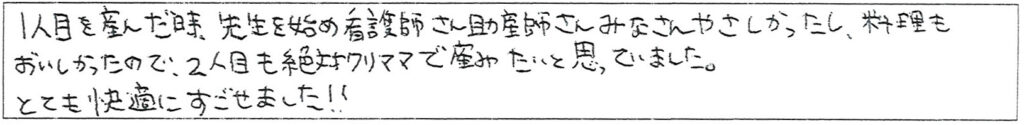 1人目を産んだ時、先生を始め看護師さん助産師さんみなさんやさしかったし、料理も
おいしかったので、2人目も絶対クリママで産みたいと思っていました。
とても快適にすごせました!!